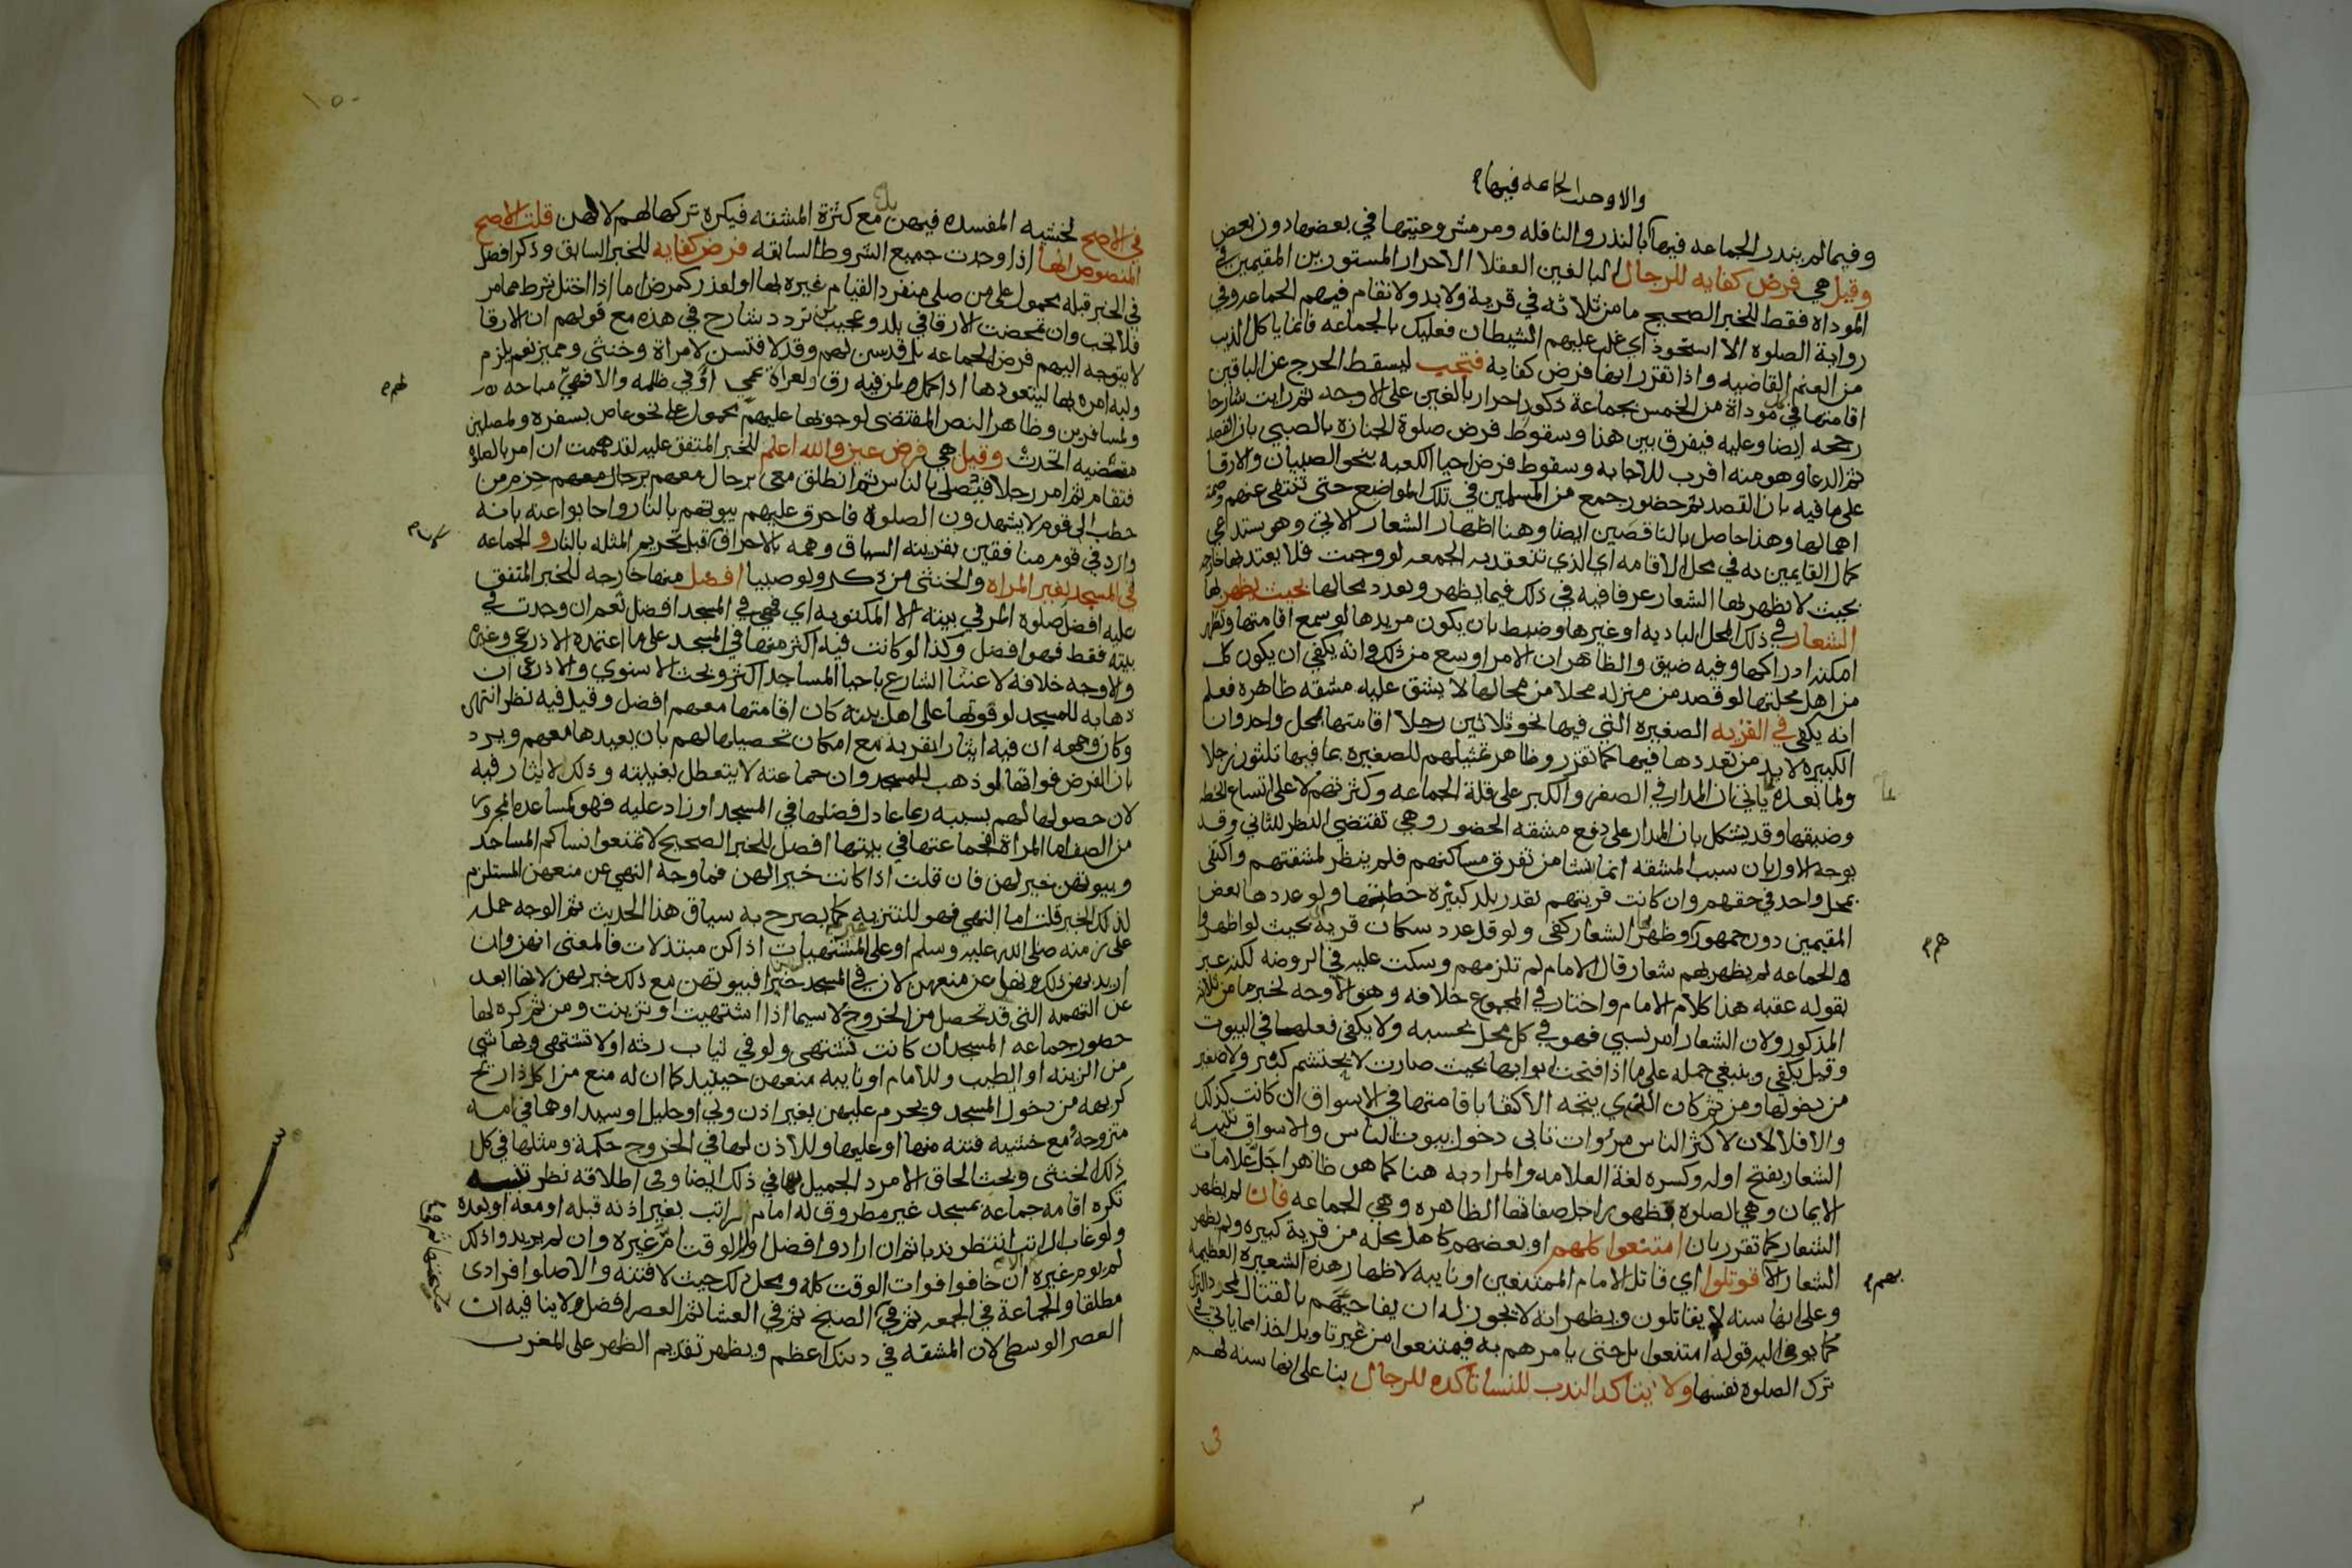 والاوجه الجماعه فيها
وفيما لم يندر الجماعه فيها كالنذر والنافله ومر مشروعيتها في بعضها دون بعض
وقيل هي فرض كفايه للرجال البالغين العقلا الاحرار المستورين المقيمين في
الموداه فقط للخبر الصحيح ما من ثلاثه في قرية ولا بدو لا تقام فيهم الجماعه وفي
رواية الصلوه الا استحوذ اي غلب عليهم الشيطان فعليك بالجماعه فانما ياكل الذيب
من الغنم القاصيه واذا تقرر انها فرض كفايه فتجب ليسقط الحرج عن الباقين
اقامتها في موداة من الخمس بجماعة ذكور احرار بالغين على الاوجه ثم رايت شارحا
رجحه ايضا وعليه فيفرق بين هذا وسقوط فرض صلوة الجنازه بالصبي بان القصد
ثم الدعا وهو منه اقرب للاجابه وسقوط فرض احيا الكعبه بنحو الصبيان والارقا
على ما فيه بان القصد ثم حضور جمع من المسلمين في تلك المواضع حتى تنتفي عنهم وصمة
اهمالها وهذا حاصل بالناقصين ايضا وهنا اظهار الشعار الاتي وهو يستدعي
كمال القايمين به في محل الاقامه اي الذي تنعقد به الجمعه لو وجبت فلا يعتد بها خارجه
بحيث لا يظهر بها الشعار عرفا فيه في ذلك فيما يظهر وتعدد محالها بحيث يظهر بها
الشعار في ذلك المحل الباديه او غيرها وضبط بان يكون مريدها لو سمع اقامتها وتطهر
امكنه ادراكها وفيه ضيق والظاهر ان الامر اوسع من ذلك وانه يكفي ان يكون كل
من اهل محلتها لو قصد من منزله محلا من محالها لا يشق عليه مشقه ظاهره فعلم
انه يكفي في القريه الصغيره التي فيها نحو ثلاثين رجلا اقامتها بمحل واحد وان
الكبيره لا بد من تعددها فيها كما تقرر وظاهر تمثيلهم للصغيره بما فيها ثلثون رجلا
ولما بعده ياتي ان المدار في الصغر والكبر على قلة الجماعه وكثرتهم لا على اتساع الخطه
وضيقها وقد يشكل بان المدار على دفع مشقه الحضور وهي تقتضي النظر للثاني وقد
يوجه الاول بان سبب المشقه انما نشا من تفرق مساكنهم فلم ينظر لمشقتهم واكتفى
بمحل واحد في حقهم وان كانت قريتهم بقدر بلد كبيره خطتها ولو عددها بعض
المقيمين دون جمهورهم وظهر الشعار كفى ولو قل عدد سكان قرية بحيث لو اظهروا
الجماعه لم يظهر بهم شعار قال الامام لم تلزمهم وسكت عليه في الروضه لكنه عبر
بقوله عقبه هذا كلام الامام واختار في المجموع خلافه وهو الاوجه لخبر ما من ثلاثه
المذكور ولان الشعار امر نسبي فهو في كل محل بحسبه ولا يكفي فعلها في البيوت
وقيل يكفي وينبغي حمله على ما اذا فتحت ابوابها بحيث صارت لا يحتشم كبير ولا صغير
من دخولها ومن ثم كان الذي يتجه الاكتفا باقامتها في الاسواق ان كانت كذلك
والا فلا لان لاكثر الناس مروات تابى دخول بيوت الناس والاسواق تنبيه
الشعار بفتح اوله وكسره لغة العلامه والمراد به هنا كما هو ظاهر اجل علامات
الايمان وهي الصلوه بظهور اجل صفاتها الظاهره وهي الجماعه فان لم يظهر
الشعار كما تقرر بان امتنعوا كلهم او بعضهم كاهل محله من قرية كبيره ولم يظهر
الشعار الا قوتلوا اي قاتل الامام الممتنعين او نايبه لاظهار هذه الشعيره العظيمه
وعلى انها سنه لا يقاتلون ويظهر انه لا يجوز له ان يفاجيهم بالقتال لمجرد الترك
كما يومي اليه قوله امتنعوا بل حتى يامرهم به فيمتنعوا من غير تاويل اخذا مما ياتي في
ترك الصلوه نفسها ولا يتاكد الندب للنسا تاكده للرجال بنا على انها سنه لهم
في
١٥٠
في الاصح لخشيه المفسده فيهن مع كثرة المشقه فيكره تركها لهم لا لهن قلت الاصح
المنصوص انها اذا وجدت جميع الشروط السابقه فرض كفايه للخبر السابق وذكر افضل
في الخبر قبله محمول على من صلى منفردا لقيام غيره بها او لعذر كمرض اما اذا اختل شرط مما مر
فلا تجب وان تمحضت الارقا في بلد وعجيب تردد شارح في هذه مع قولهم ان الارقا
لا يتوجه اليهم فرض الجماعه بل قد يسن لهم وقد لا فتسن لامراة وخنثى ومميز نعم يلزم
وليه امره بها ليتعودها اذا كمل ولمن فيه رق ولعراة عمي او في ظلمه والا فهي مباحه
ولمسافرين وظاهر النص المقتضي لوجوبها عليهم محمول على نحو عاص بسفره ولمصلين
مقضيه اتحدت وقيل هي فرض عين والله اعلم للخبر المتفق عليه لقد هممت ان امر بالصلوه
فتقام ثم امر رجلا فيصلي بالناس ثم انطلق معي برجال معهم حزم من
حطب الى قوم لا يشهدون الصلوه فاحرق عليهم بيوتهم بالنار واجابوا عنه بانه
وارد في قوم منافقين بقرينه السياق وهمه بالاحراق قبل تحريم المثله بالنار والجماعه
في المسجد لغير المراه والخنثى من ذكر ولو صبيا افضل منها خارجه للخبر المتفق
عليه افضل صلوه المر في بيته الا المكتوبه اي فهي في المسجد افضل نعم ان وجدت في
بيته فقط فهو افضل وكذا لو كانت فيه اكثر منها في المسجد على ما اعتمده الاذرعي وغيره
والاوجه خلافه لاعتنا الشارع باحيا المساجد اكثر وبحث الاسنوي والاذرعي ان
ذهابه للمسجد لو فوتها على اهل بيته كان اقامتها معهم افضل وقيل فيه نظر انتهى
وكان وجهه ان فيه ايثارا بقربه مع امكان تحصيلها لهم بان يعيدها معهم ويرد
بان الفرض فواتها لو ذهب للمسجد وان جماعته لا يتعطل بغيبته وذلك لا ايثار فيه
لان حصولها لهم بسببه ربما عادل فضلها في المسجد او زاد عليه فهو كمساعده المجرور
من الصف اما المراة فجماعتها في بيتها افضل للخبر الصحيح لا تمنعوا نساكم المساجد
وبيوتهن خير لهن فان قلت اذا كانت خيرا لهن فما وجه النهي عن منعهن المستلزم
لذلك الخبر قلت اما النهي فهو للتنزيه كما يصرح به سياق هذا الحديث ثم الوجه حمله
على زمنه صلى الله عليه وسلم او على غير المشتهيات اذا كن مبتذلات فالمعنى انهن وان
اريد بهن ذلك ونهي عن منعهن لان في المسجد خيرا فبيوتهن مع ذلك خير لهن لانها ابعد
عن التهمه التي قد تحصل من الخروج لا سيما اذا اشتهيت او تزينت ومن ثم كره لها
حضور جماعه المسجد ان كانت تشتهى ولو في ثياب رثه او لا تشتهى وبها شي
من الزينه او الطيب وللامام او نايبه منعهن حينيذ كما ان له منع من اكل ذا ريح
كريهه من دخول المسجد ويحرم عليهن بغير اذن ولي او حليل او سيد او هما في امه
متزوجه مع خشيه فتنه منها او عليها وللاذن لها في الخروج حكمه ومثلها في كل
ذلك الخنثى وبحث الحاق الامرد الجميل بها في ذلك ايضا وفي اطلاقه نظر تنبيه
تكره اقامه جماعه بمسجد غير مطروق له امام راتب بغير اذنه قبله او معه او بعده
ولو غاب الراتب انتظر ندبا ثم ان ارادوا فضل اول الوقت ام غيره وان لم يريدوا ذلك
لم يوم غيره الا ان خافوا فوات الوقت كله ومحل ذلك حيث لا فتنه والا صلوا فرادى
مطلقا والجماعة في الجمعه ثم في الصبح ثم في العشا ثم العصر افضل ولا ينافيه ان
العصر الوسطى لان المشقه في ذينك اعظم ويظهر تقديم الظهر على المغرب